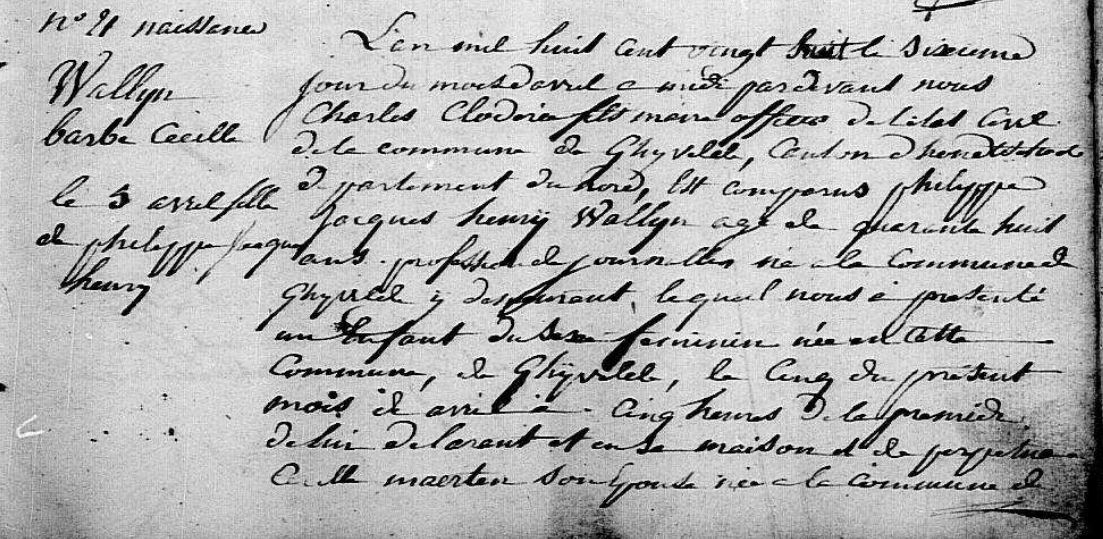 n° 21 naissance
Wallyn
barbe Cecille
le 5 avril fille
de philippe Jacque
henry
L'an mil huit cent vingt huit le sixieme
jour du mois d'avril a midi par devant nous
Charles Clodorie fils maire officier de l'etat Civil
de la commune de Ghyvelde, Canton d'hondschoote
departement du nord, Est comparus philippe
Jacques henry Wallyn agé de quarante huit
ans profession de journellier né a la Commune de
Ghyvelde y demeurent, lequel nous a presenté
un Enfant du sexe feminin née en cette
Commune, de Ghyvelde, le Cinq du présent
mois de avril a Cinq heures de la
de lui declarant et en sa maison et de perpetue
Cecille maerten son Epouse née a la Commune de